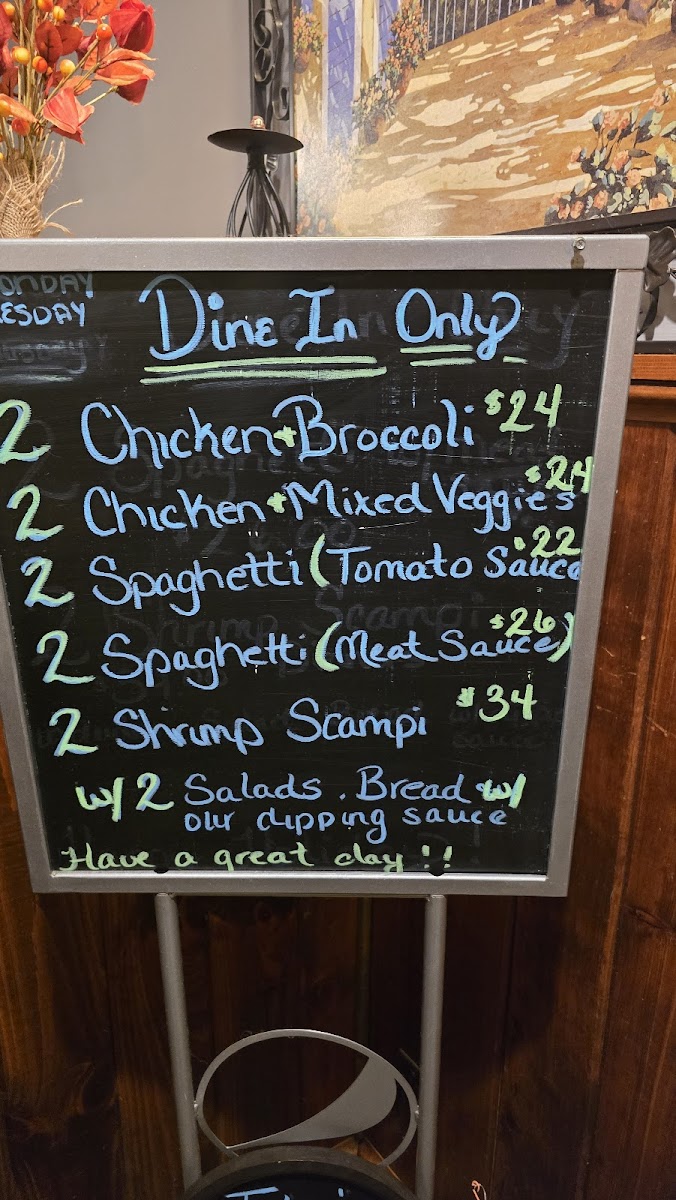 ONDAY
ESDAY
Dine In Only
2 Chicken + Broccoli $24
2 Chicken + Mixed Veggies $24
2 Spaghetti (Tomato Sauce $22
2 Spaghetti (Meat Sauce) $26
2 Shrimp Scampi $34
w/ 2 Salads . Bread w/
our dipping sauce
Have a great day !!